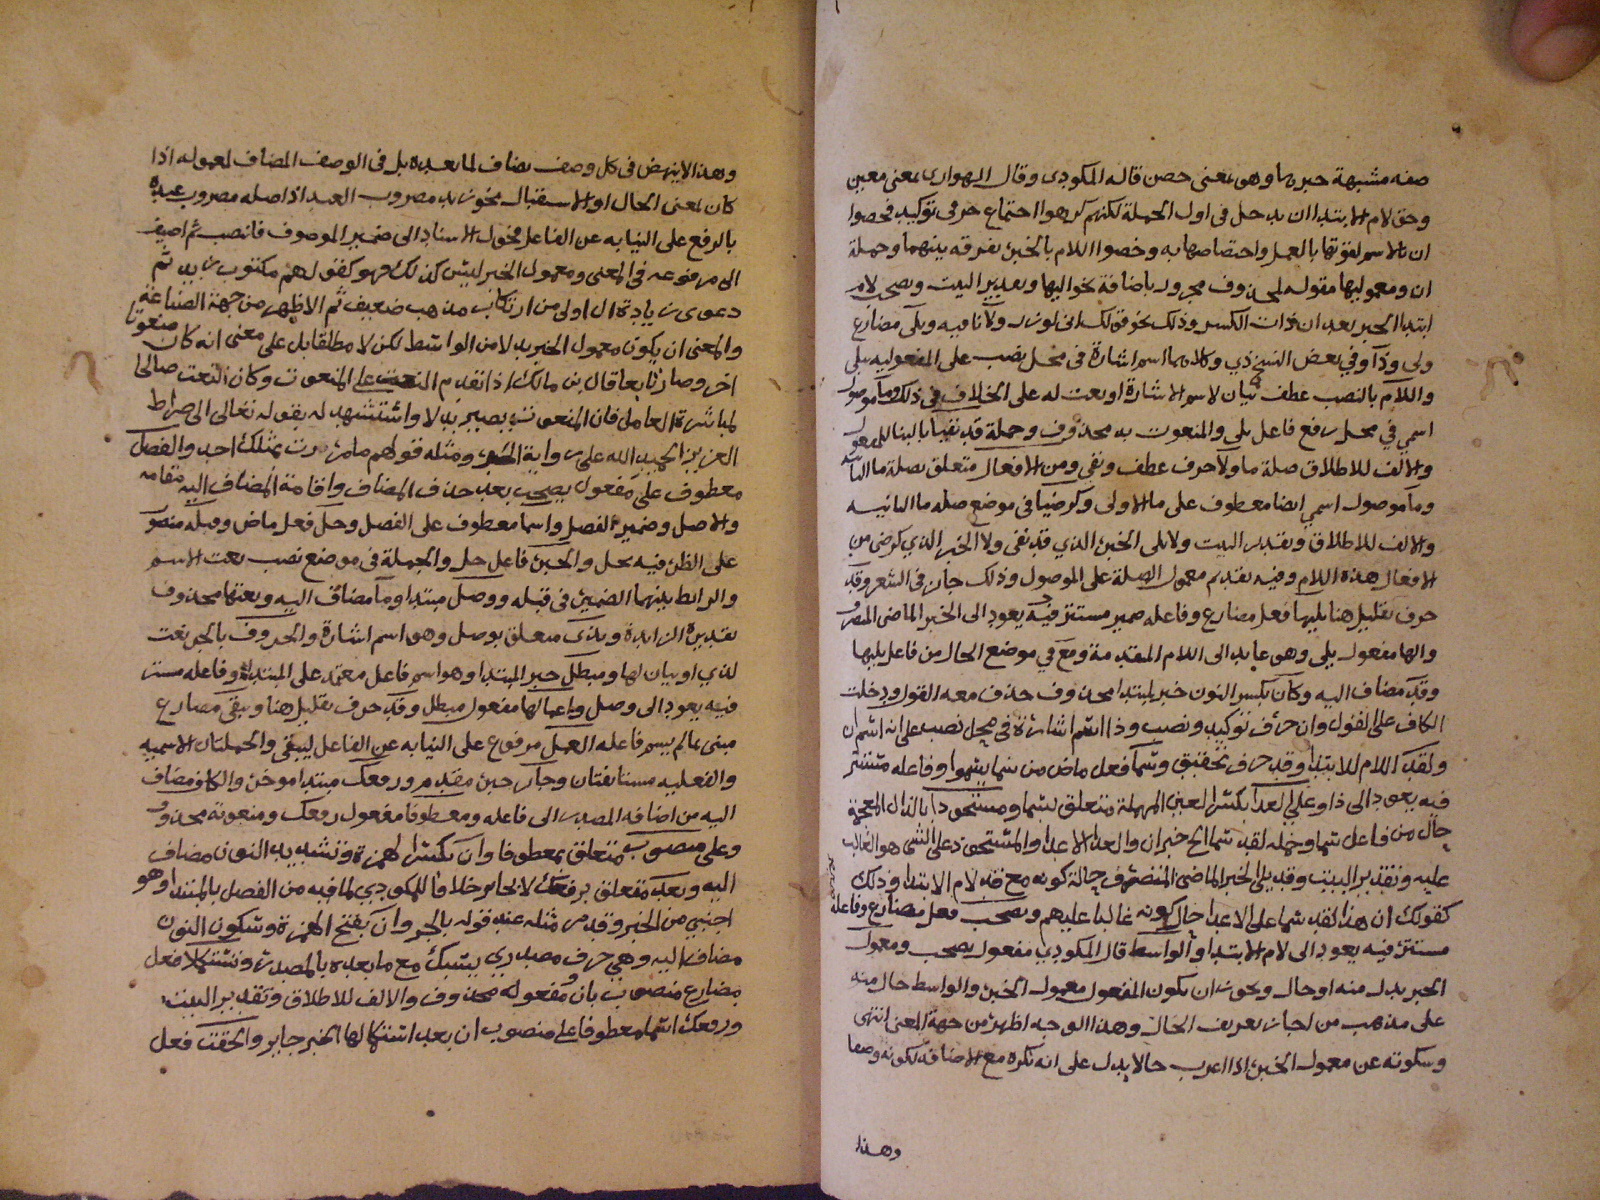 صفه مشبهة خبرها وهو بمعنى حصن قاله المكودى وقال الهوارى بمعنى معين
وحق لام الابتدا ان يدخل فى اول الجملة لكنهم كرهوا اجتماع حرفى توكيد فخصوا
ان بالاسم لقوتها بالعمل واختصاصها به وخصوا اللام بالخبر تفرقه بينهما وجملة
ان ومعموليها مقوله لمحذوف مجرور باضافة نحو اليها وتقدير البيت وتصحب لام
ابتدا الخبر بعد ان ذات الكسر وذلك نحو قولك انى لوزر ولا نافيه ويلى مضارع
ولى وذا وفي بعض النسخ ذي وكلاهما اسم اشارة فى محل نصب على المفعوليه بيلى
واللام بالنصب عطف بيان لاسم الاشارة او نعت له على الخلاف فى ذلك وما موصول
اسمي في محل رفع فاعل يلى والمنعوت به محذوف وجملة قد نفيا بالبنا للمفعول
والالف للاطلاق صلة ما ولا حرف عطف ونفى ومن الافعال متعلق بصلة ما الثانيه
وما موصول اسمي ايضا معطوف على ما الاولى وكرضيا فى موضع صله ما الثانيه
والالف للاطلاق وتقدير البيت ولا يلى الخبر الذي قد نفى ولا الخبر الذي كرضى من
الافعال هذه اللام وفيه تقديم معمول الصلة على الموصول وذلك جائز فى الشعر وقد
حرف تقليل هنا يليها فعل مضارع وفاعله ضمير مستتر فيه يعود الى الخبر الماضى المتصرف
والها مفعول يلى وهى عايد الى اللام المتقدمة ومع في موضع الحال من فاعل يليها
وقد مضاف اليه وكان بكسر النون خبر لمبتدا محذوف حذف معه القول ودخلت
الكاف على القول وان حرف توكيد ونصب وذا اسم اشارة فى محل نصب على انه اسم ان
ولقد اللام للابتدا وقد حرف تحقيق وسما فعل ماض من سما يسموا وفاعله مستتر
فيه يعود الى ذا وعلى العدا بكسر العين المهملة متعلق بسما ومستحوذا بالذال المعجمة
حال من فاعل سما وجمله لقد سما الخ خبر ان والعدا الاعدا والمستحوذ على الشى هو الغالب
عليه وتقدير البيت وقد يلى الخبر الماضى المتصرف حالة كونه مع قد لام الابتدا وذلك
كقولك ان هذا لقد سما على الاعدا حال كونه غالبا عليهم وتصحب فعل مضارع وفاعله
مستتر فيه يعود الى لام الابتدا والواسط قال المكودي مفعول بصحب ومعمول
الخبر بدل منه او حال ويجوز ان يكون المفعول معمول الخبر والواسط حال منه
على مذهب من اجاز تعريف الحال وهذا الوجه اظهر من جهة المعنى انتهى
وسكوته عن معمول الخبر اذا اعرب حالا يدل على انه نكره مع الاضافة لكونه وصفا
وهذا
وهذا لا ينهض فى كل وصف يضاف لما بعده بل فى الوصف المضاف لمعموله اذا
كان بمعنى الحال او الاستقبال نحو زيد مضروب العبد اذ اصله مضروب عبده
بالرفع على النيابه عن الفاعل فحول الاسناد الى ضمير الموصوف فانصب ثم اضيف
الى مرفوعه فى المعنى ومعمول الخبر ليس كذلك فهو كقولهم مكتوب زيد ثم
دعوى زيادة ال اولى من ارتكاب مذهب ضعيف ثم الاظهر من جهة الصناعة
والمعنى ان يكون معمول الخبر بدلا من الواسط لكن لا مطلقا بل على معنى انه كان منعوتا
اخر وصار تابعا قال بن مالك اذا تقدم النعت على المنعوت وكان النعت صالحا
لمباشرة العامل فان المنعوت يصير بدلا واستشهد له بقوله تعالى الى صراط
العزيز الحميد الله على رواية الجر ومثله قولهم ما مررت بمثلك احد والفصل
معطوف على مفعول يصحب بعد حذف المضاف واقامة المضاف اليه مقامه
والاصل وضمير الفصل واسما معطوف على الفصل وحل فعل ماض وقبله منصوب
على الظرفيه بحل والخبر فاعل حل والجملة فى موضع نصب نعت الاسم
والرابط بينهما الضمير فى قبله ووصل مبتدا وما مضاف اليه ونعتها محذوف
تقديره الزايدة وبذى متعلق بوصل وهو اسم اشارة والحروف بالجر نعت
لذي او بيان لها ومبطل خبر المبتدا وهو اسم فاعل معتمد على المبتدا وفاعله مستتر
فيه يعود الى وصل واعمالها مفعول مبطل وقد حرف تقليل هنا ويبقى مضارع
مبنى لما لم يسم فاعله العمل مرفوع على النيابه عن الفاعل ليبقى والجملتان الاسميه
والفعليه مستانفتان وجائز خبر مقدم ورفعك مبتدا موخر والكاف مضاف
اليه من اضافه المصدر الى فاعله ومعطوفا مفعول رفعك ومنعوته محذوف
وعلى منصوب متعلق بمعطوفا وان بكسر الهمزة وتشديد النون مضاف
اليه وبعد متعلق برفعك لا بجائز خلافا للمكودي لما فيه من الفصل بالمبتدا وهو
اجنبي من الخبر وقد مر مثله عند قوله بالجر وان بفتح الهمزة وسكون النون
مضاف اليه وهي حرف مصدري ينسبك مع ما بعده بالمصدر وتستكملا فعل
مضارع منصوب بان ومفعوله محذوف والالف للاطلاق وتقدير البيت
ورفعك اسما معطوفا على منصوب ان بعد استكمالها الخبر جايز والحقت فعل